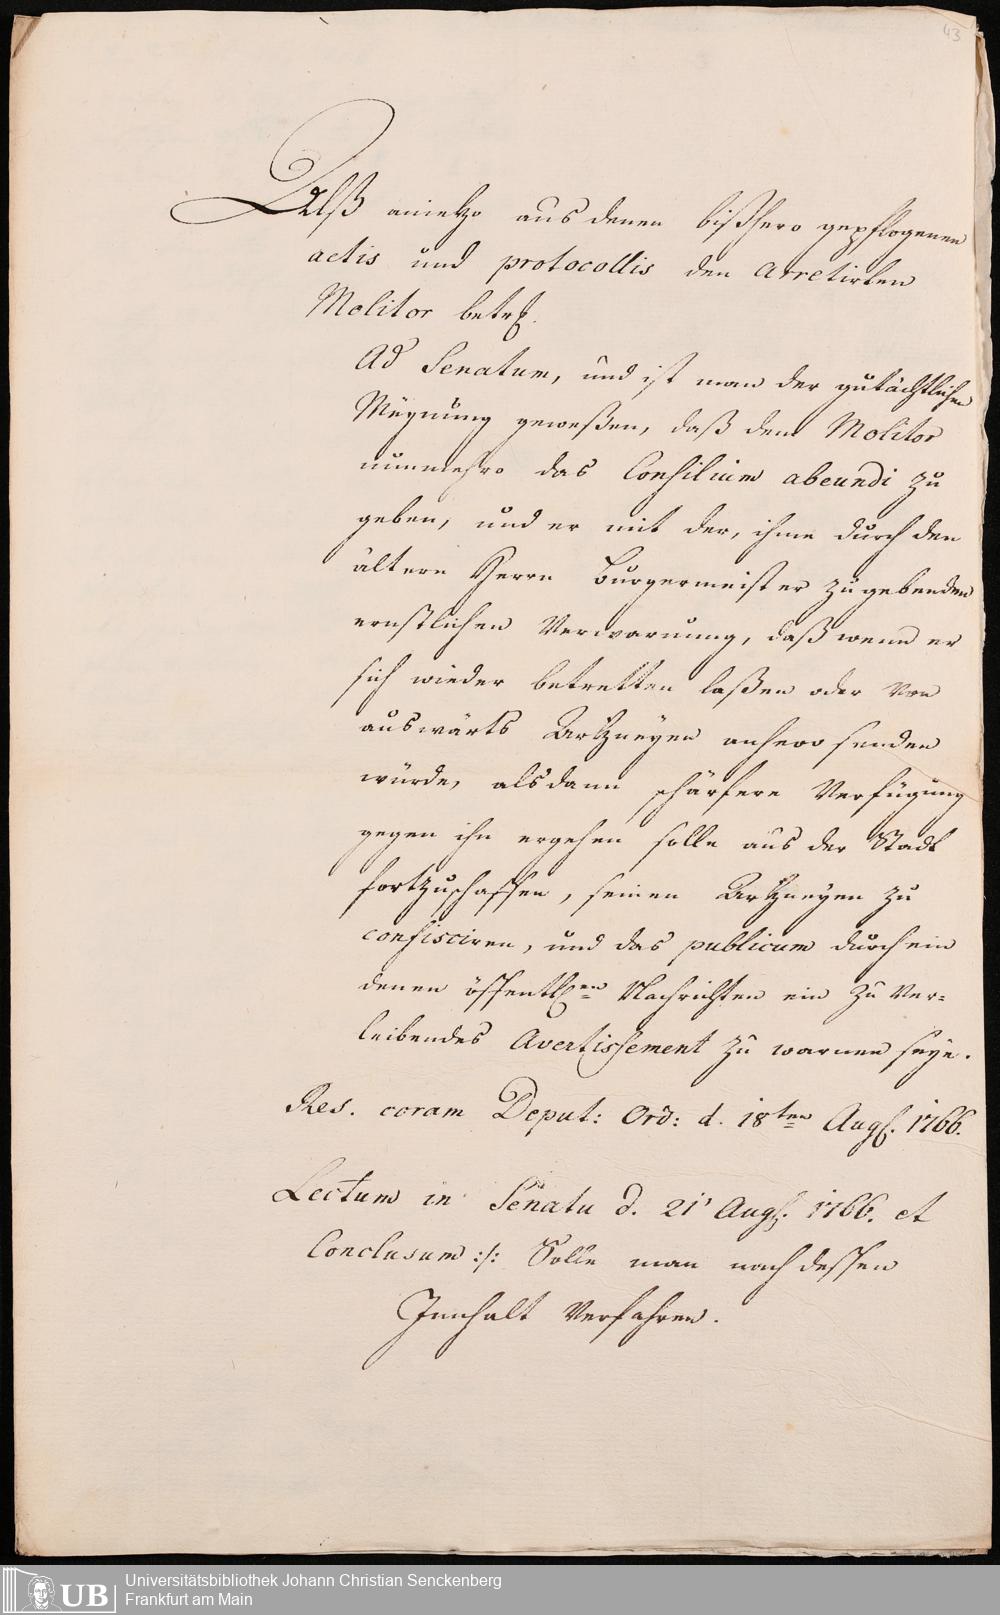 43
Alß anietzo aus denen bißhero gepflogenen
actis und protocollis den Arretirten
Molitor betrf.
Ad Senatum, und ist man der gutächtlichen
Meynung geweßen, daß dem Molitor
nunmehro das Consilium abeundi zu
geben, und er mit der, ihme durch den
ältern Herrn Burgermeister zugebenden
ernstlichen Verwarnung, daß wenn er
sich wieder betretten laßen oder von
auswärts Artzneyen anhero senden
würde, alsdann schärfere Verfügung
gegen ihn ergehen solle aus der Stadt
fortzuschaffen, seinen Artzneyen zu
confisciren, und das publicum durch ein
denen öffentl.en Nachrichten ein zu ver=
leibendes Avertissement zu warnen seye.
Res. coram Deput: Ord: d. 18ten Augs. 1766.
Lectum in Senatu d. 21t Augs. 1766. et
Conclusum :/: Solle man nach dessen
Innhalt verfahren.
UB
Universitätsbibliothek Johann Christian Senckenberg
Frankfurt am Main